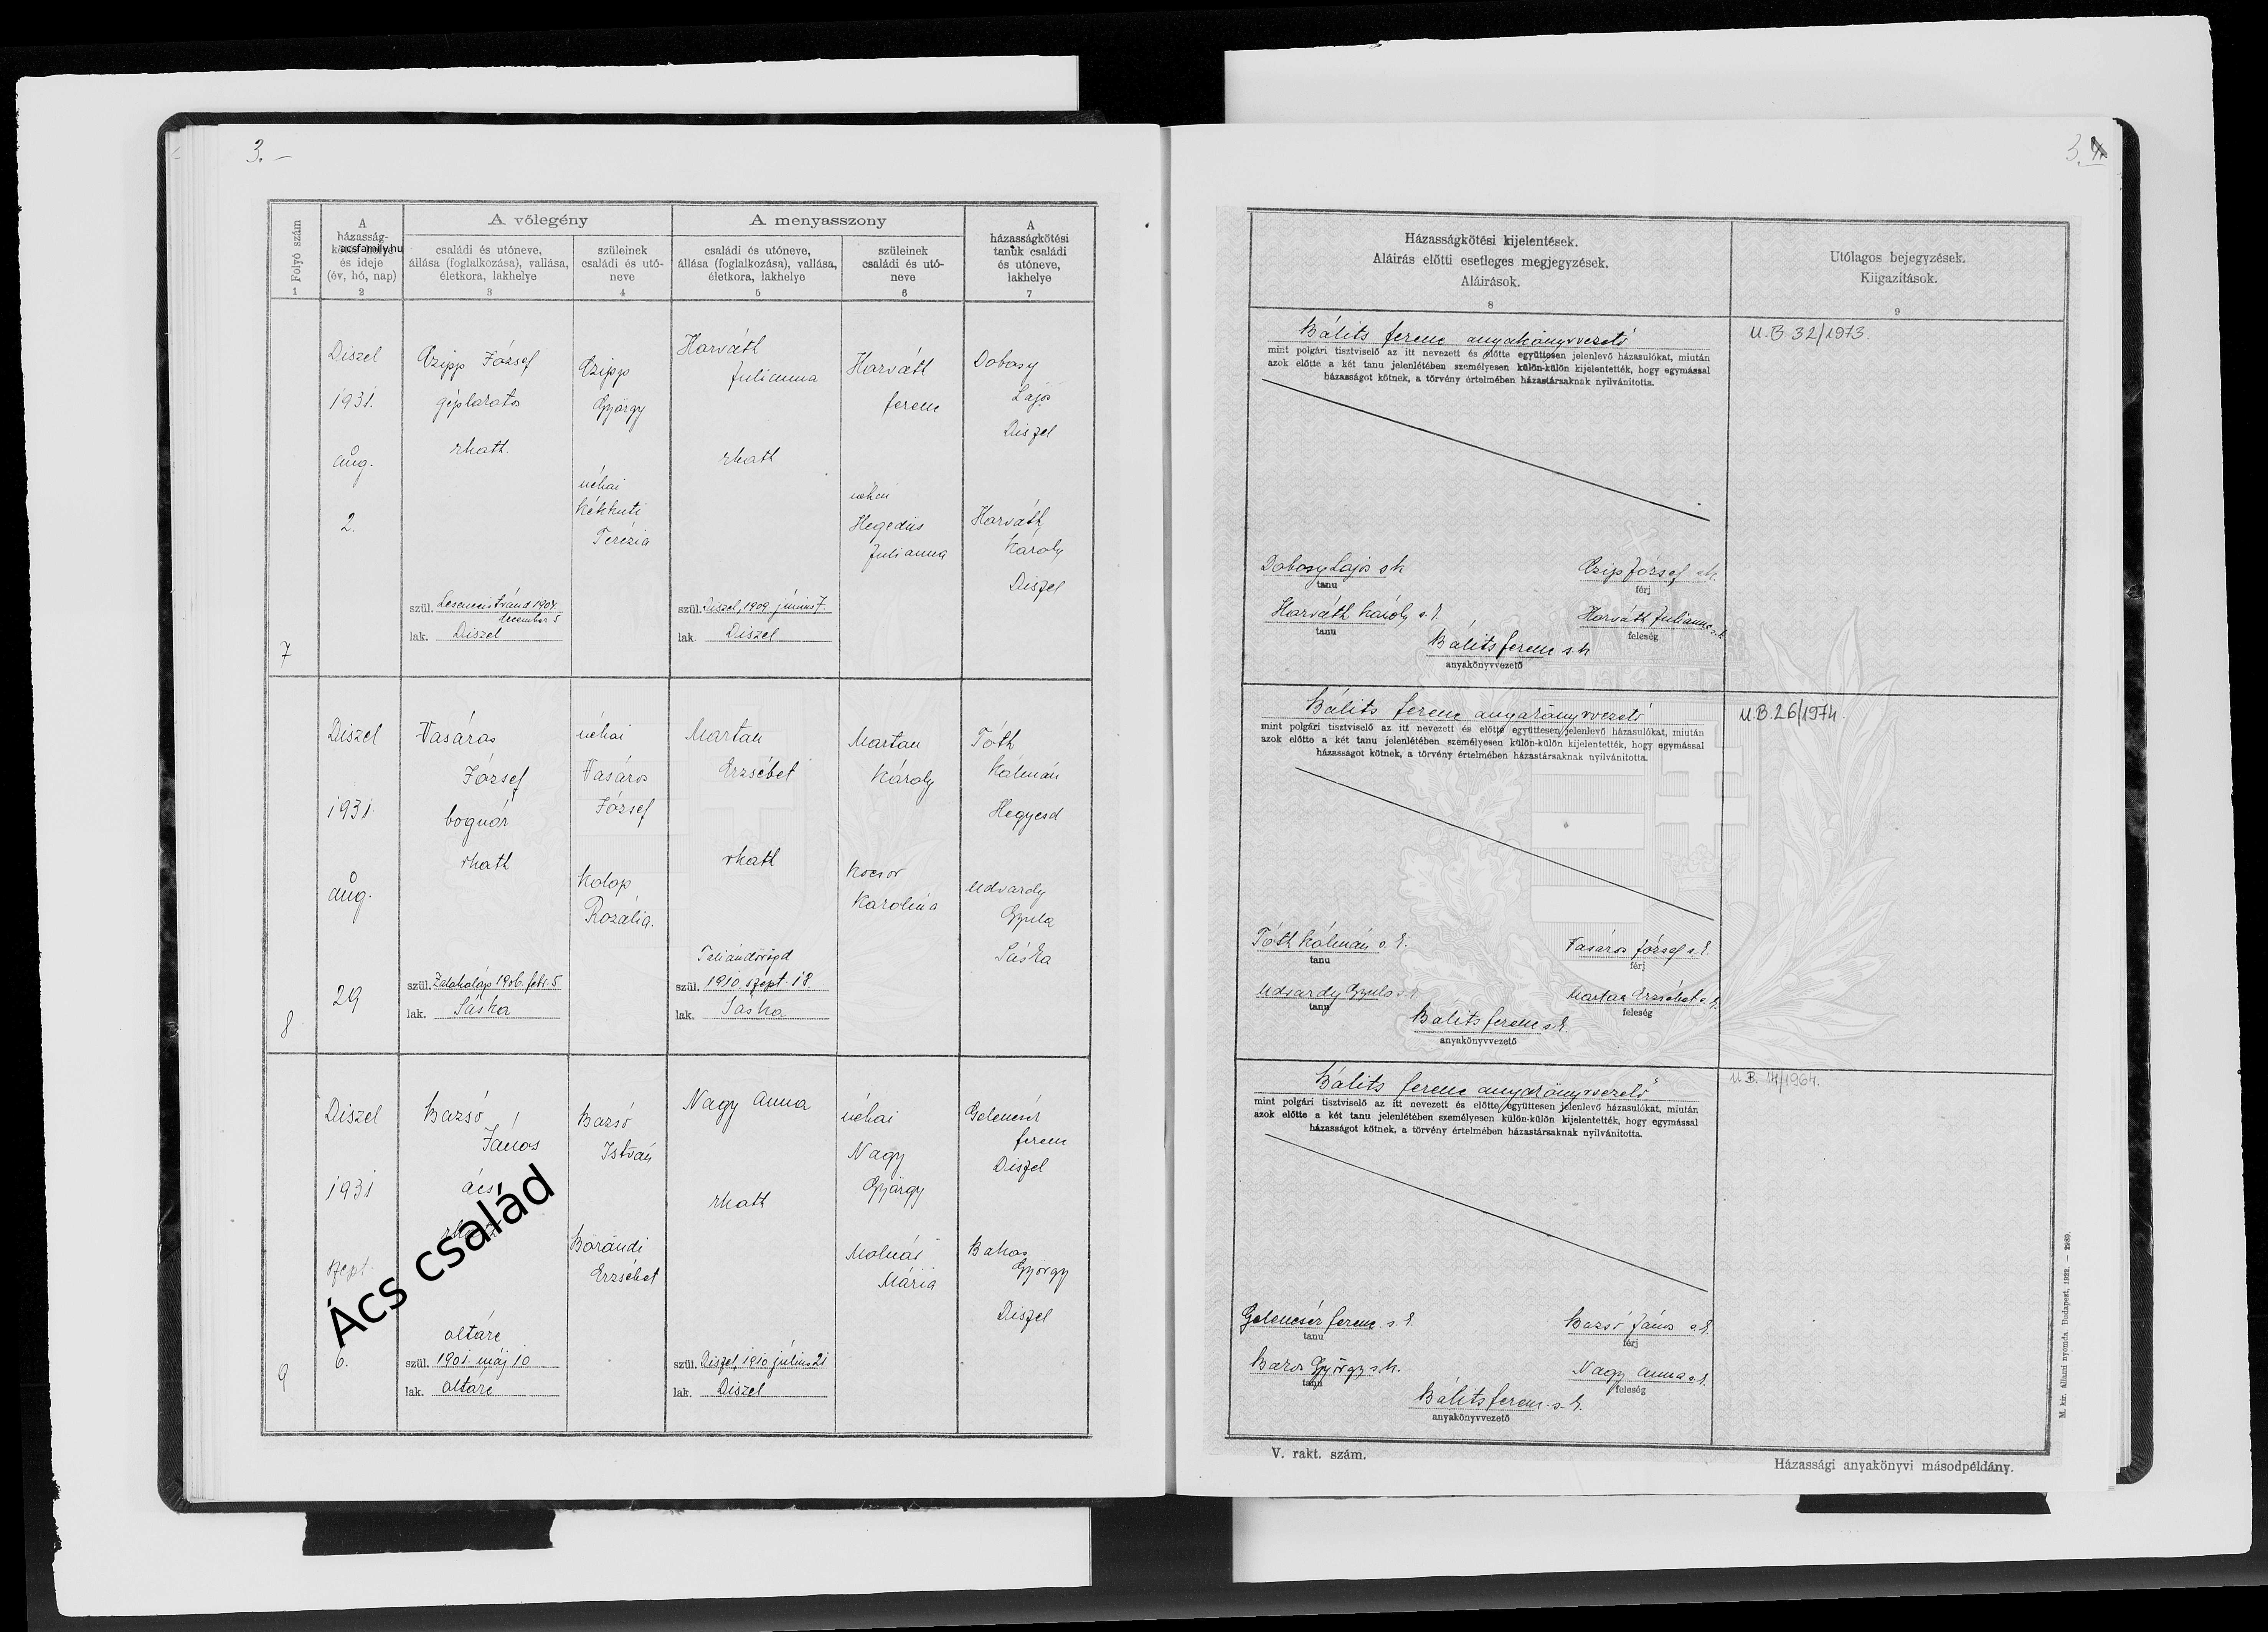 3. –
Folyó szám
1
A
házasság-
acsfamily.hu
és ideje
(év, hó, nap)
2
A vőlegény
családi és utóneve,
állása (foglalkozása), vallása,
életkora, lakhelye
3
szüleinek
családi és utó-
neve
4
A menyasszony
családi és utóneve,
állása (foglalkozása), vallása,
életkora, lakhelye
5
szüleinek
családi és utó-
neve
6
A
házasságkötési
tanúk családi
és utóneve,
lakhelye
7
7
Diszel
1931.
aug.
2.
Czipp József
rkath.
szül. 
december 5
lak. Diszel
Czipp
György
néhai
Kékkuti
Terézia
Horváth
Julianna
rkath
szül. Diszel, 1909 június 7.
lak. Diszel
Horváth
Ferenc
néhai
Hegedüs
Julianna
Dobosy
Lajos
Diszel
Horváth
Károly
Diszel
8
Diszel
1931.
aug.
29
Vasáros
József
bognár
rkath
szül. Zalahaláp 1906. febr. 5
lak. Sáska
néhai
Vasáros
József
Kolop
Rozália.
Martan
Erzsébet
rkath
Taliándörögd
szül. 1910. szept. 18.
lak. Sáska
Martan
Károly
Kocsor
Karolina
Tóth
Kálmán
Hegyesd
Udvardy
Gyula
Sáska
9
Diszel
1931
szept.
6.
Bazsó
János
ács
szül. 1901. máj 10
lak.
Bazsó
István
Barándi
Erzsébet
Nagy Anna
rkath
szül. Diszel, 1910 július 21
lak. Diszel
néhai
Nagy
György
Molnár
Mária
Gelencsér
Ferenc
Diszel
György
Diszel
Ács család
3.
Házasságkötési kijelentések.
Aláírás előtti esetleges megjegyzések.
Aláírások.
8
Utólagos bejegyzések.
Kiigazítások.
9
Bálits Ferenc anyakönyvvezető
mint polgári tisztviselő az itt nevezett és előtte együttesen jelenlevő házasulókat, miután
azok előtte a két tanu jelenlétében személyesen külön-külön kijelentették, hogy egymással
házasságot kötnek, a törvény értelmében házastársaknak nyilvánította.
U.B 32/1973.
Dobosy Lajos s.k
tanu
Czip József s.k.
férj
Horváth Károly s.k.
tanu
Horváth Julianna s.k.
feleség
Bálits Ferenc s.k
anyakönyvvezető
Bálits Ferenc anyakönyvvezető
mint polgári tisztviselő az itt nevezett és előtte együttesen jelenlevő házasulókat, miután
azok előtte a két tanu jelenlétében személyesen külön-külön kijelentették, hogy egymással
házasságot kötnek, a törvény értelmében házastársaknak nyilvánította.
U.B.26/1974.
Tóth Kálmán s.k.
tanu
Vasáros József s.k.
férj
Udvardy Gyula s.k.
tanu
Martan Erzsébet s.k.
feleség
Bálits Ferenc s.k.
anyakönyvvezető
Bálits Ferenc anyakönyvvezető
mint polgári tisztviselő az itt nevezett és előtte együttesen jelenlevő házasulókat, miután
azok előtte a két tanu jelenlétében személyesen külön-külön kijelentették, hogy egymással
házasságot kötnek, a törvény értelmében házastársaknak nyilvánította.
Gelencsér Ferenc s.k.
tanu
Bazsó János s.k.
férj
György s.k.
tanu
Nagy Anna s.k.
feleség
Bálits Ferenc s.k.
anyakönyvvezető
V. rakt. szám.
Házassági anyakönyvi másodpéldány.
M. kir. Állami nyomda. Budapest, 1922. — 2989.